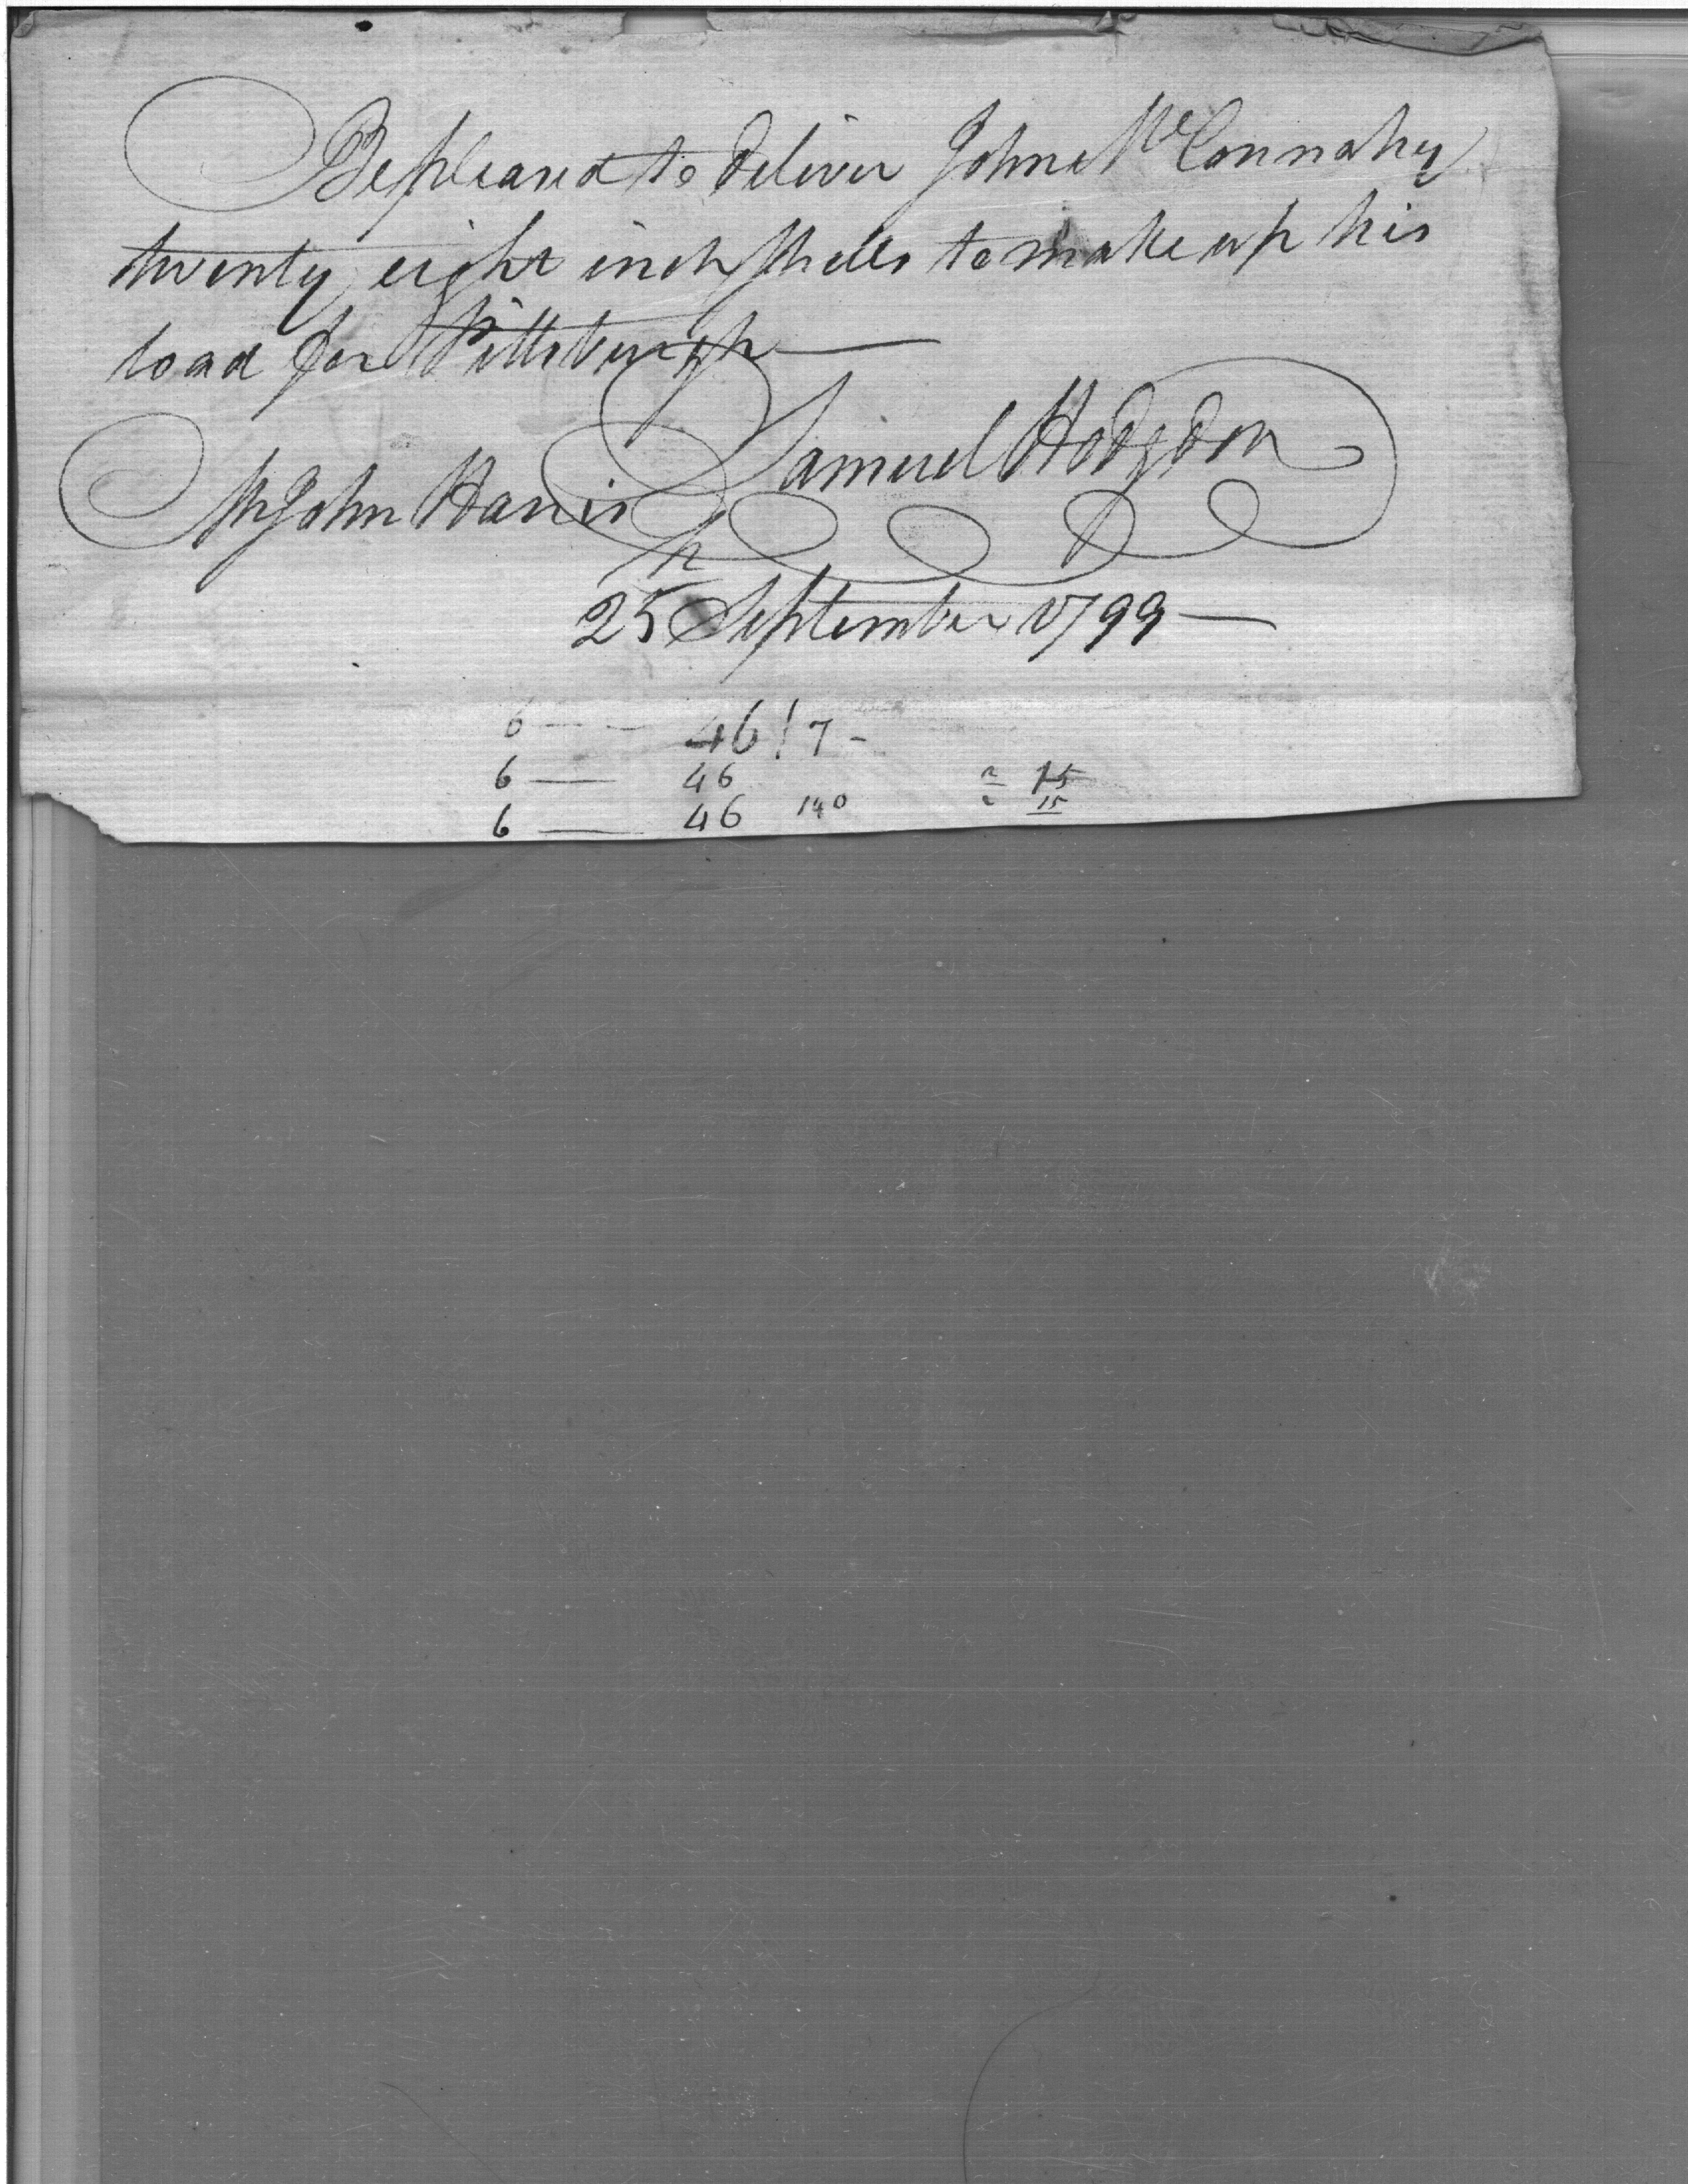 Be pleased to deliver John McConnahy
twenty eight inch Shells to make up his
load for Pittsburgh —
Samuel Hodgdon
Mr John Harris
25 September 1799 —
6 — — 46 / 7 -
6 — 46 15
6 — 46 140 15